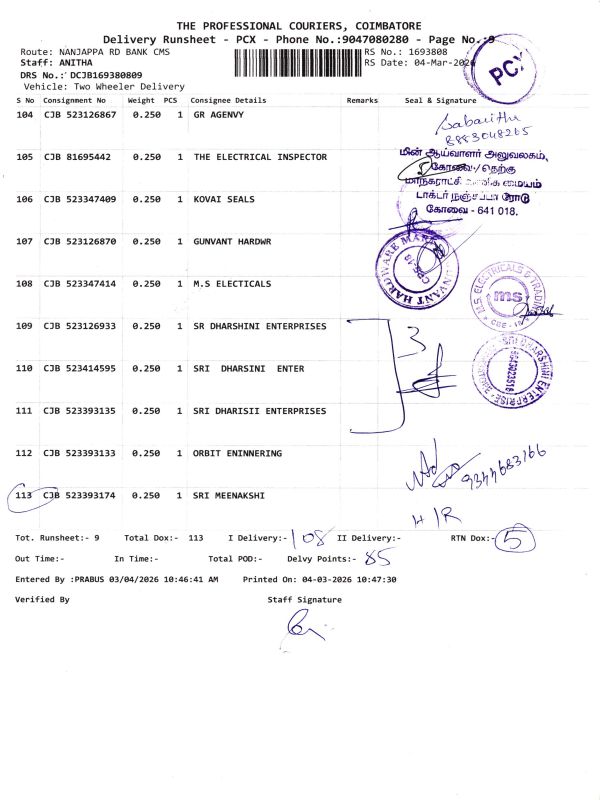 THE PROFESSIONAL COURIERS, COIMBATORE
Delivery Runsheet - PCX - Phone No.:9047080280 - Page No.:9
Route: NANJAPPA RD BANK CMS
RS No.: 1693808
Staff: ANITHA
RS Date: 04-Mar-2026
PCX
DRS No.: DCJB169380809
Vehicle: Two Wheeler Delivery
S No Consignment No Weight PCS Consignee Details Remarks Seal & Signature
104 CJB 523126867 0.250 1 GR AGENVY
Sabarithi
8883048265
105 CJB 81695442 0.250 1 THE ELECTRICAL INSPECTOR
மின் ஆய்வாளர் அலுவலகம்,
கோவை/தெற்கு
மாநகராட்சி வணிக மையம்
டாக்டர் நஞ்சப்பா ரோடு
கோவை - 641 018.
106 CJB 523347409 0.250 1 KOVAI SEALS
107 CJB 523126870 0.250 1 GUNVANT HARDWR
GUNVANT HARDWARE MART
CBE-18
108 CJB 523347414 0.250 1 M.S ELECTICALS
M.S. ELECTRICALS & TRADING
ms
CBE - 18
109 CJB 523126933 0.250 1 SR DHARSHINI ENTERPRISES
3
110 CJB 523414595 0.250 1 SRI DHARSINI ENTER
SRI DHARSHINI ENTERPRISE
111 CJB 523393135 0.250 1 SRI DHARISII ENTERPRISES
112 CJB 523393133 0.250 1 ORBIT ENINNERING
9344683166
113 CJB 523393174 0.250 1 SRI MEENAKSHI
H/R
Tot. Runsheet:- 9 Total Dox:- 113 I Delivery:- 108 II Delivery:- RTN Dox:- 5
Out Time:- In Time:- Total POD:- Delvy Points:- 85
Entered By :PRABUS 03/04/2026 10:46:41 AM Printed On: 04-03-2026 10:47:30
Verified By Staff Signature